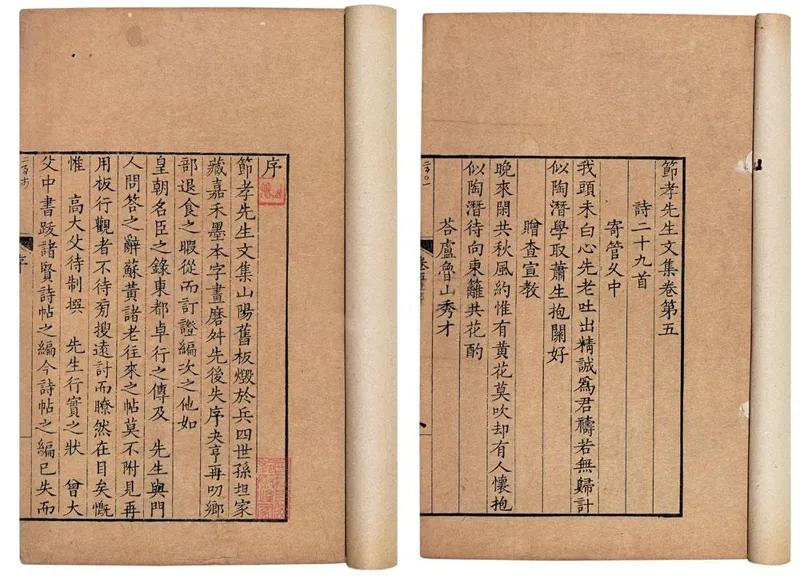 序
節孝先生文集山陽舊板燬於兵四世孫坦家
藏嘉禾墨本字畫磨舛先後失序夬亨再叨鄉
部退食之暇從而訂證編次之他如
皇朝名臣之錄東都卓行之傳及 先生與門
人問答之辭蘇黃諸老往來之帖莫不附見再
用板行觀者不待旁搜遠討而瞭然在目矣慨
惟 高大父待制撰 先生行實之狀 曾大
父中書跋諸賢詩帖之編今詩帖之編已失而
序
節孝先生文集卷第五
詩二十九首
寄管久中
我頭未白心先老吐出精誠為君禱若無歸計
似陶潛學取蕭生抱關好
贈查宣教
晚來閑共秋風約惟有黃花莫吹却有人懷抱
似陶潛待向東籬共花酌
荅盧魯山秀才